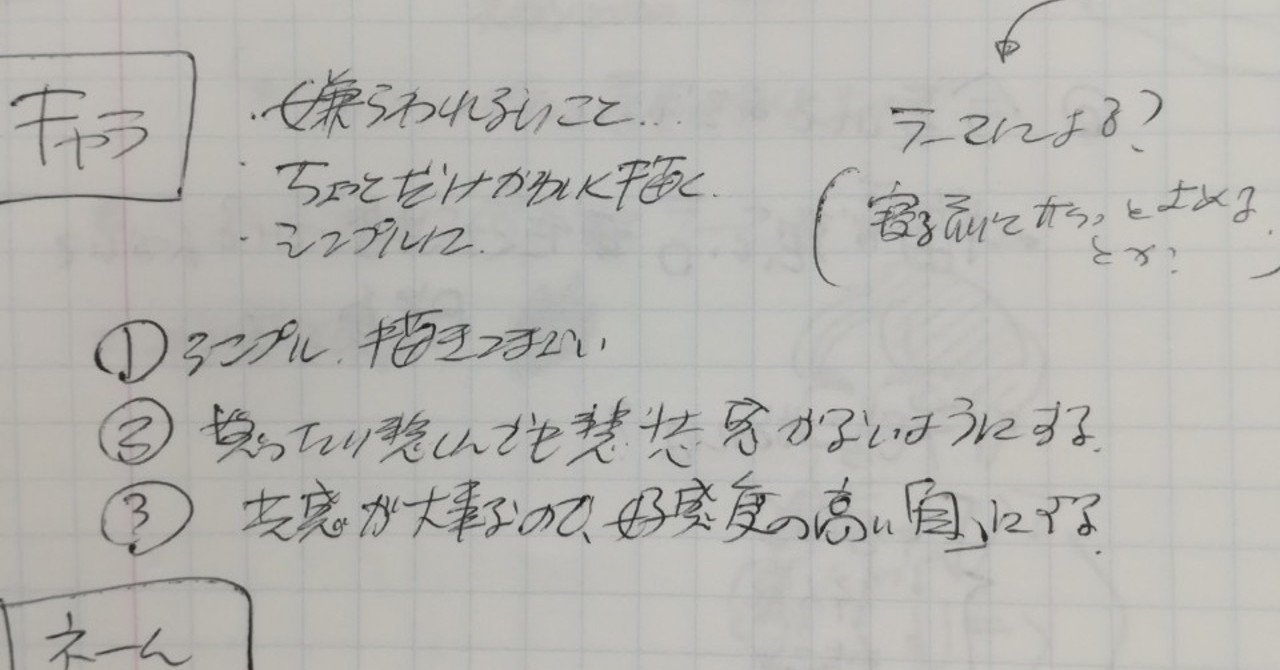 キャラ
・嫌われないこと...
・ちょっとだけかわいく描く.
・シンプルに.
テーマによる?
(寝る前に と まめる
とか?)
① シンプル. 描きつまない
② 怒ったり悲しんでも 感がないようにする.
③ 共感が大事なので、好感度の高い「自」にする.
ネーム